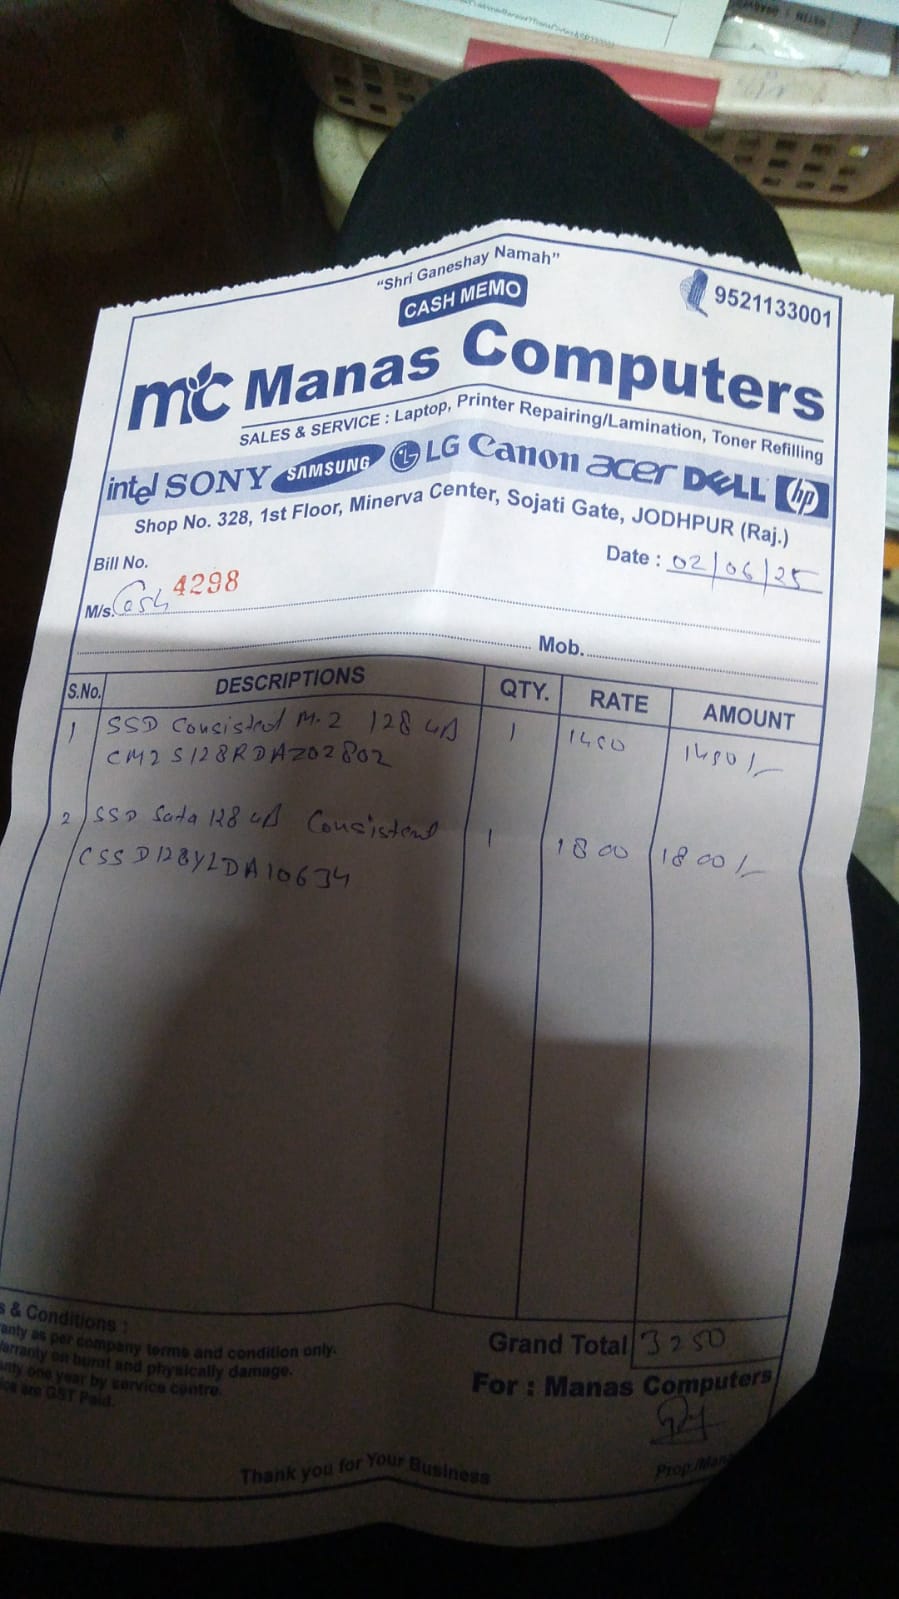 "Shri Ganeshay Namah"
CASH MEMO
9521133001
mc Manas Computers
SALES & SERVICE : Laptop, Printer Repairing/Lamination, Toner Refilling
intel SONY SAMSUNG LG Canon acer DELL hp
Shop No. 328, 1st Floor, Minerva Center, Sojati Gate, JODHPUR (Raj.)
Bill No. 4298 Date : 02/06/25
M/s. Cash
Mob.
S.No. DESCRIPTIONS QTY. RATE AMOUNT
1 SSD Consistent M.2 128 GB 1 1450 1450/-
CM2S128RDAZ02802
2 SSD Sata 128 GB Consistent 1 1800 1800/-
CSSD128YLDA10634
s & Conditions :
ranty as per company terms and condition only.
Warranty on burnt and physically damage.
anty one year by service centre.
ice are GST Paid.
Grand Total 3250
For : Manas Computers
Thank you for Your Business
Prop./Man